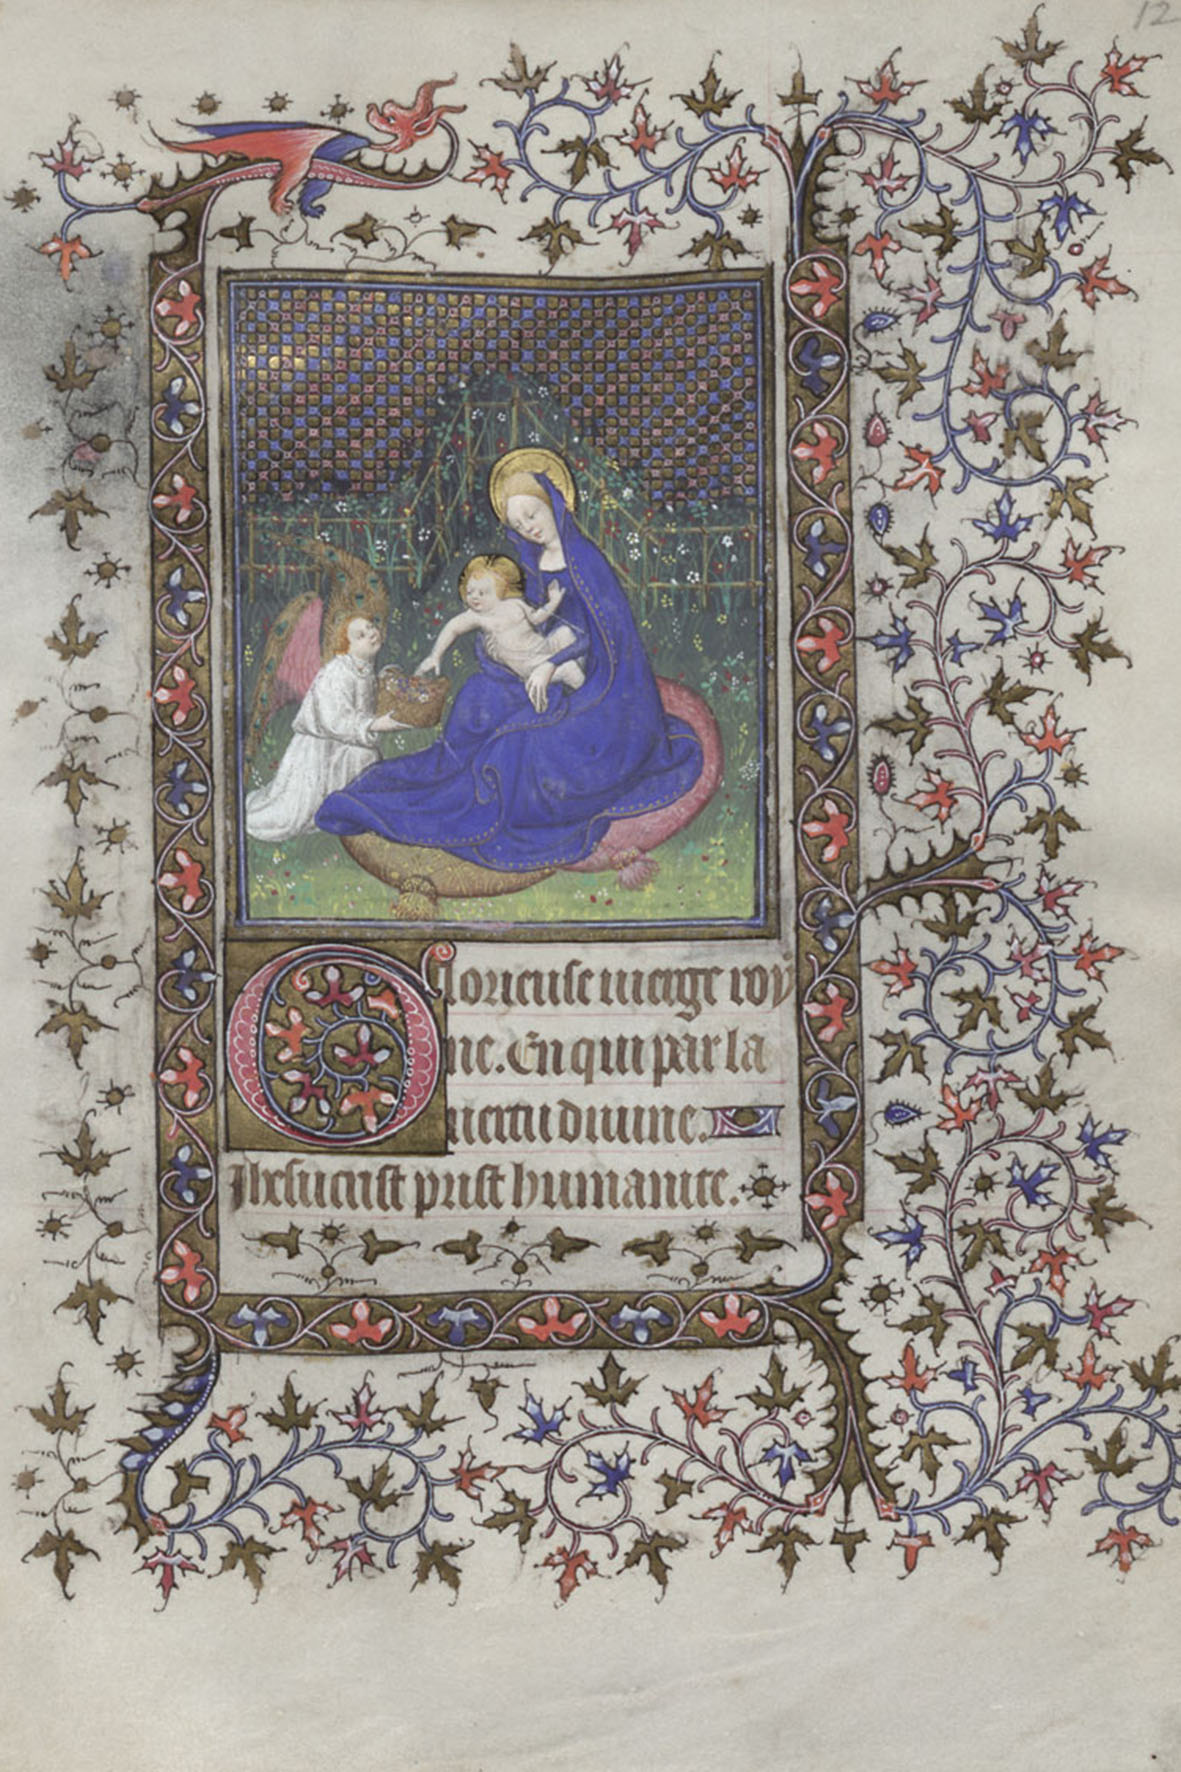 12
Glorieuse vierge roy
ne. En qui par la
vertu divine.
Jhesucrist prist humanite.